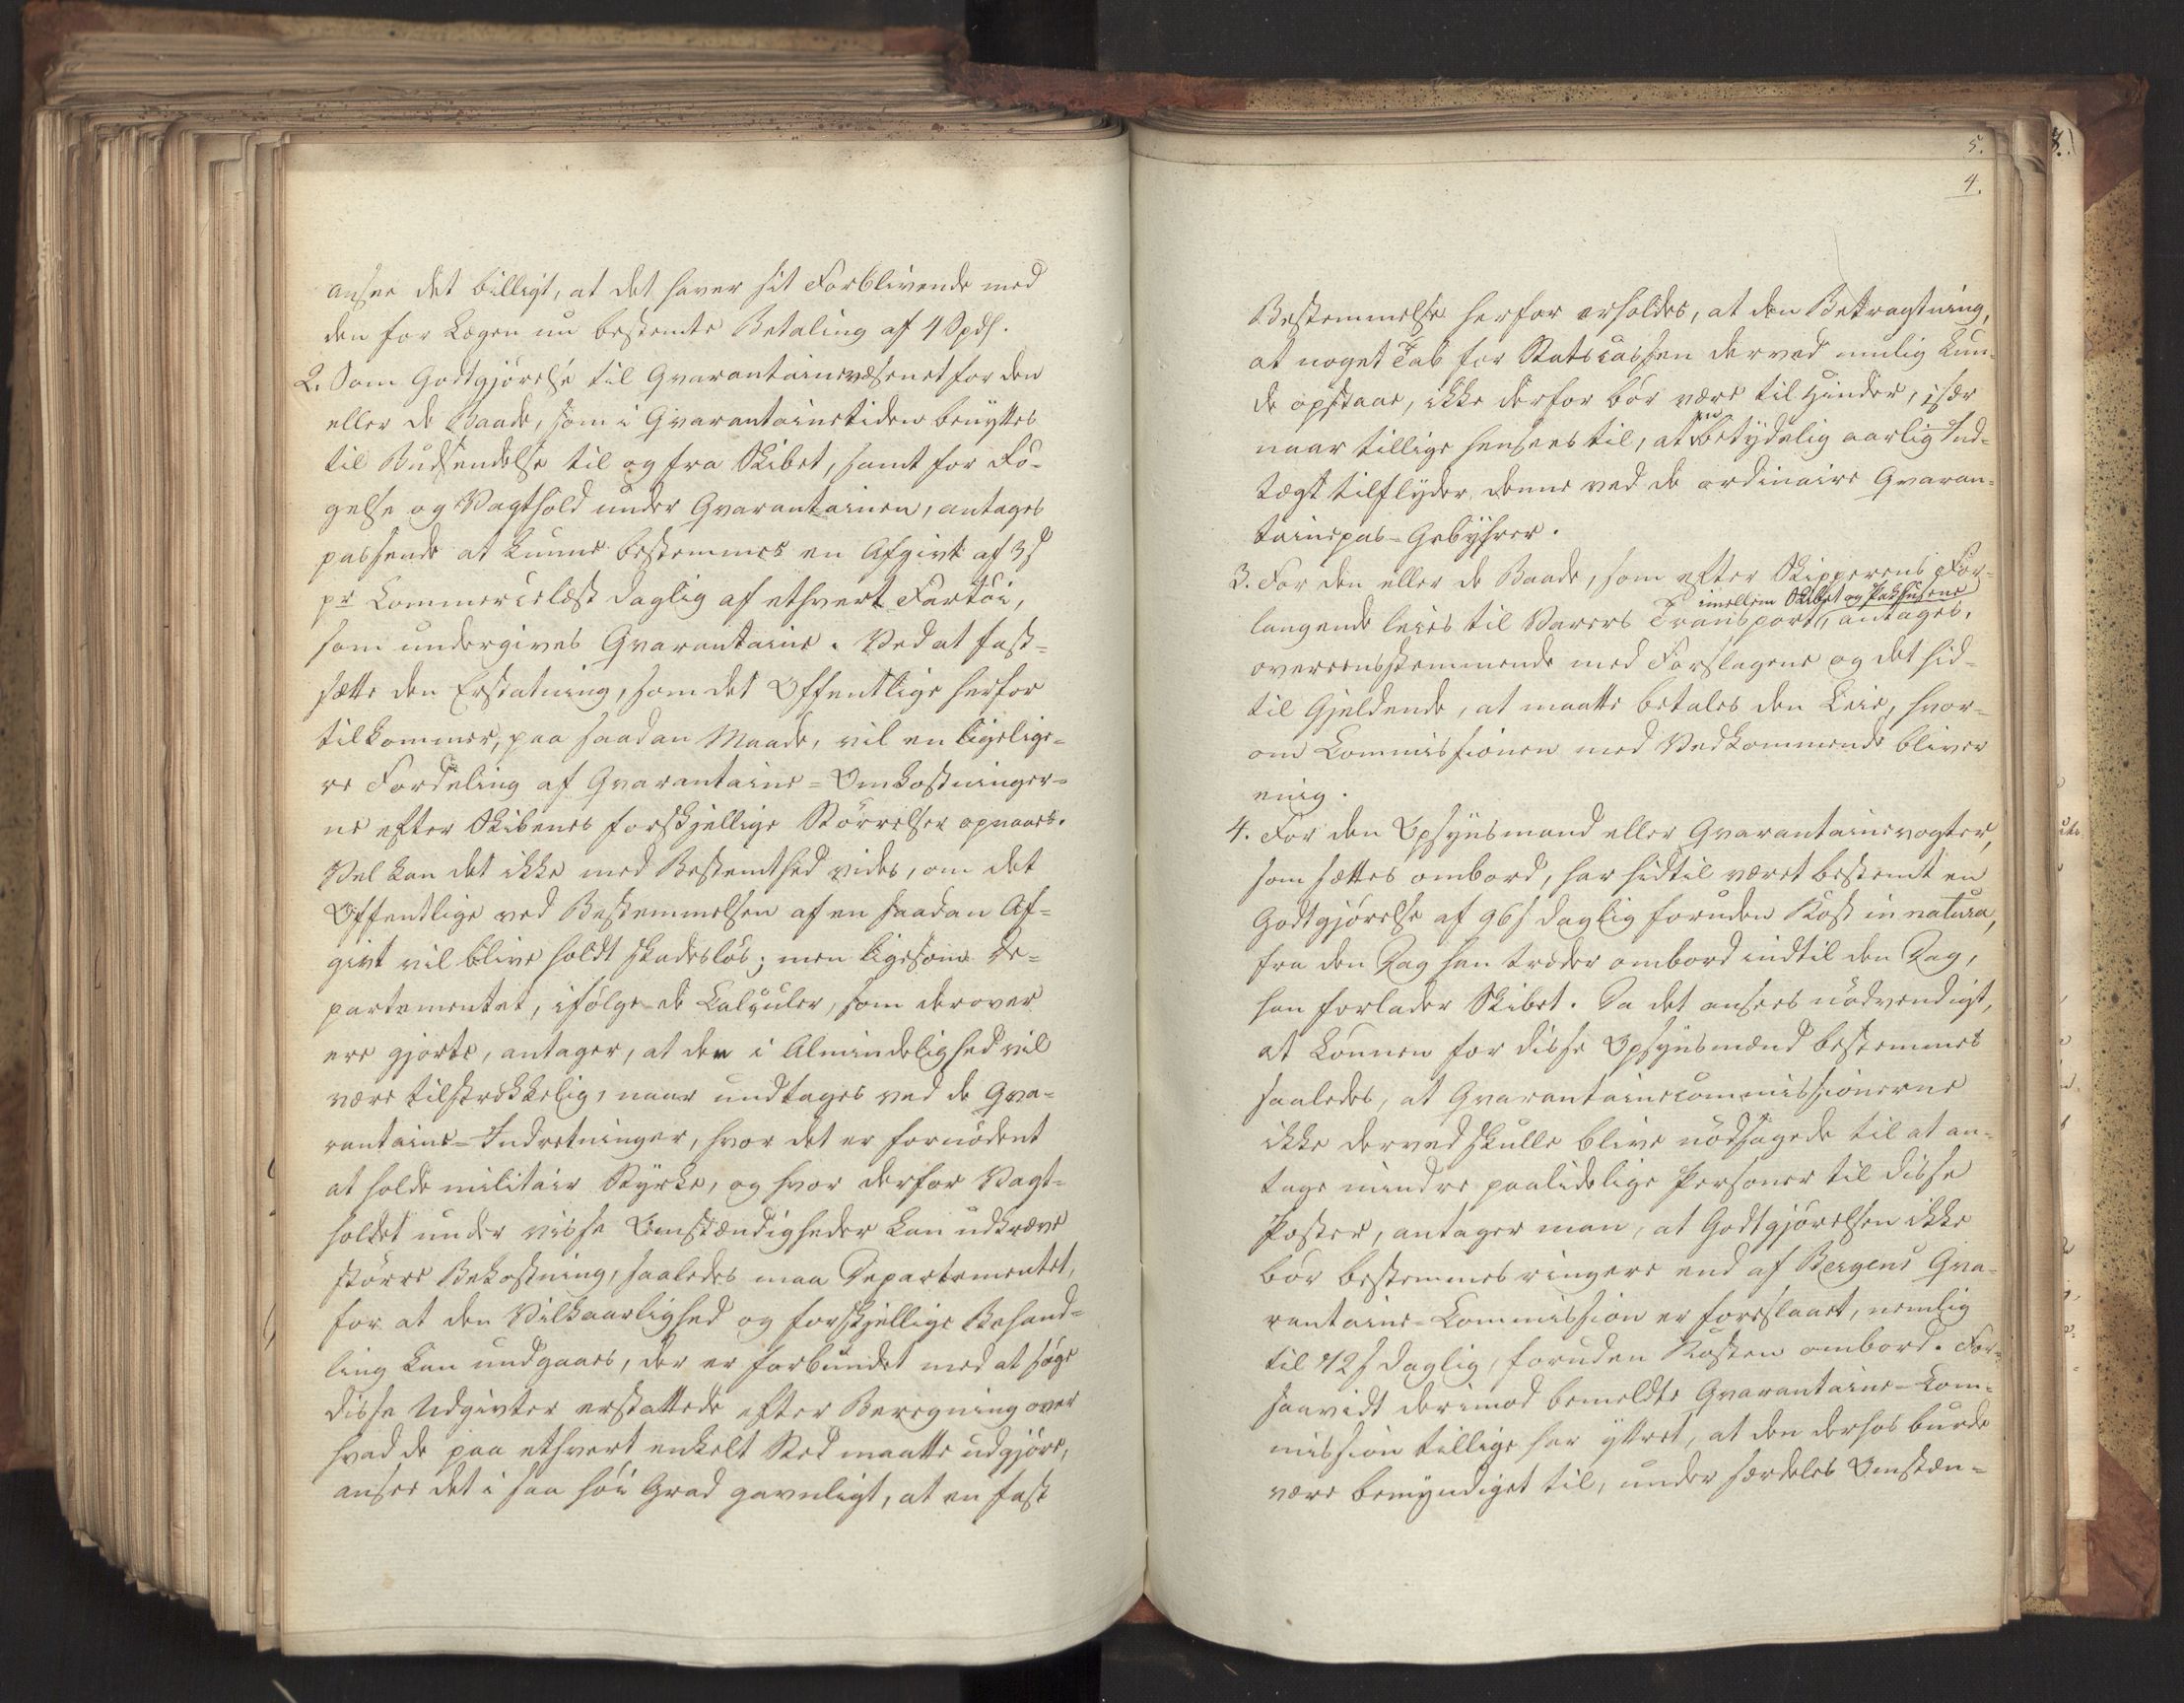 ansee det billigt, at det haver sit Forblivende med
den for Lægen nu bestemte Betaling af 4 Spdl.
2. Som Godtgjørelse til Qvarantainevæsenet for den
eller de Baade, som i Qvarantainetiden benyttes
til Budsendelse til og fra Skibet, samt for Fø-
gelse og Vagthold under Qvarantainen, antages
passende at kunne bestemmes en Afgivt af 3 s
pr Commercelæst daglig af ethvert Fartöi,
som undergives Qvarantaine. Ved at fast-
sætte den Erstatning, som det Offentlige herfor
tilkommer, paa saadan Maade, vil en ligelige-
re Fordeling af Qvarantaine-Omkostninger-
ne efter Skibenes forskjellige Størrelser opnaaes.
Vel kan det ikke med Bestemthed vides, om det
Offentlige ved Bestemmelsen af en saadan Af-
givt vil blive holdt skadesløs; men ligesom De-
partementet, ifølge de Calculer, som derover
ere gjorte, antager, at den i Almindelighed vil
være tilstrækkelig, naar undtages ved de Qva-
rantaine-Indretninger, hvor det er fornødent
at holde militair Styrke, og hvor derfor Vagt-
holdet under visse Omstændigheder kan udkræve
større Bekostning, saaledes maa Departementet,
for at den Vilkaarlighed og forskjellige Behand-
ling kan undgaaes, der er forbundet med at søge
disse Udgivter erstattede efter Beregning over
hvad de paa ethvert enkelt Sted maatte udgjøre,
ansee det i saa høi Grad gavnligt, at en fast
5.
4.
Bestemmelse herfor erholdes, at den Betragtning,
at noget Tab for Statscassen derved mulig kun-
de opstaae, ikke derfor bør være til Hinder, især
naar tillige hensees til, at en betydelig aarlig Ind-
tægt tilflyder denne ved de ordinaire Qvaran-
tainepas-Gebyhrer.
3. For den eller de Baade, som efter Skipperens For-
langende leies til Varers Transport imellem Skibet og Pakhusene, antages,
overeensstemmende med Forslagene og det hid-
til Gjeldende, at maatte betales den Leie, hvor-
om Commissionen med Vedkommende bliver
enig.
4. For den Opsynsmand eller Qvarantainevogter,
som sættes ombord, har hidtil været bestemt en
Godtgjørelse af 96 s daglig foruden Kost in natura,
fra den Dag han træder ombord indtil den Dag,
han forlader Skibet. Da det ansees nødvendigt,
at Lønnen for disse Opsynsmænd bestemmes
saaledes, at Qvarantainecommissionerne
ikke derved skulle blive nødsagede til at an-
tage mindre paalidelige Personer til disse
Poster, antager man, at Godtgjørelsen ikke
bør bestemmes ringere end af Bergens Qva-
rantaine-Commission er foreslaaet, nemlig
til 72 s daglig, foruden Kosten ombord. For-
saavidt derimod bemeldte Qvarantaine-Com-
mission tillige har yttret, at den derhos burde
være bemyndiget til, under særdeles Omstæn-